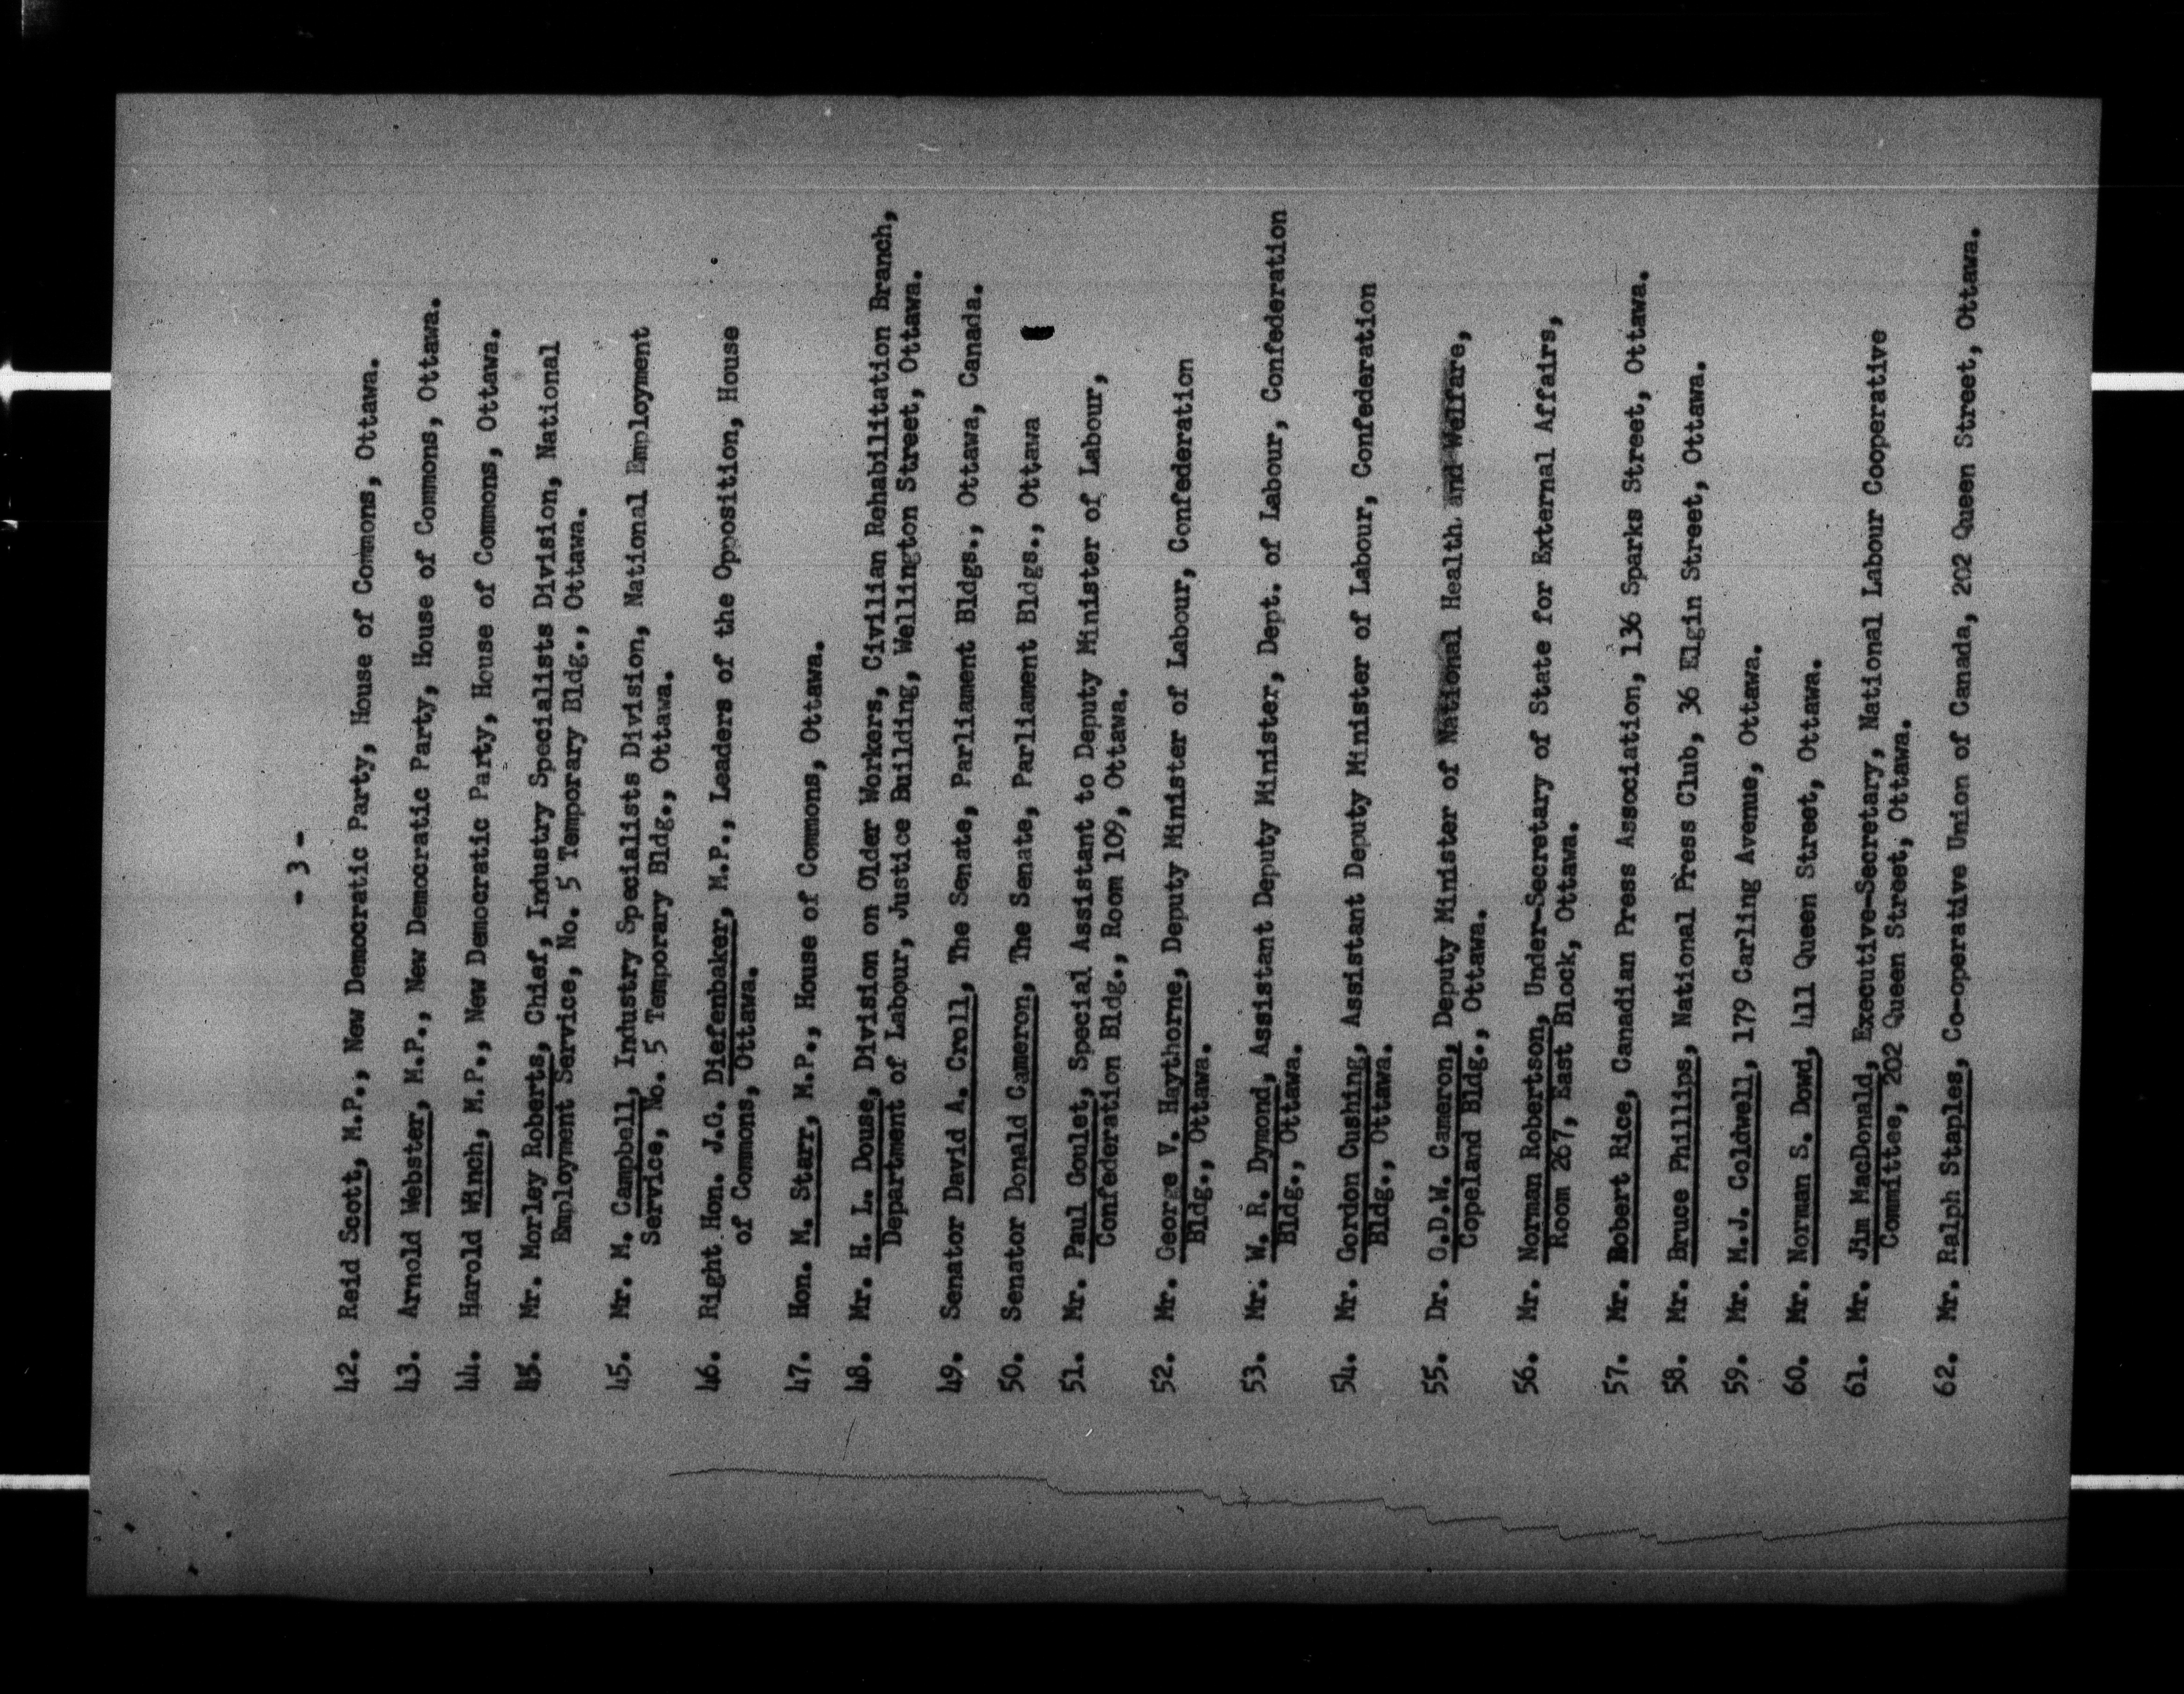 - 3 -
42. Reid Scott, M.P., New Democratic Party, House of Commons, Ottawa.
43. Arnold Webster, M.P., New Democratic Party, House of Commons, Ottawa.
44. Harold Winch, M.P., New Democratic Party, House of Commons, Ottawa.
45. Mr. Morley Roberts, Chief, Industry Specialists Division, National
Employment Service, No. 5 Temporary Bldg., Ottawa.
45. Mr. M. Campbell, Industry Specialists Division, National Employment
Service, No. 5 Temporary Bldg., Ottawa.
46. Right Hon. J.G. Diefenbaker, M.P., Leaders of the Opposition, House
of Commons, Ottawa.
47. Hon. M. Starr, M.P., House of Commons, Ottawa.
48. Mr. H. L. Douse, Division on Older Workers, Civilian Rehabilitation Branch,
Department of Labour, Justice Building, Wellington Street, Ottawa.
49. Senator David A. Croll, The Senate, Parliament Bldgs., Ottawa, Canada.
50. Senator Donald Cameron, The Senate, Parliament Bldgs., Ottawa
51. Mr. Paul Goulet, Special Assistant to Deputy Minister of Labour,
Confederation Bldg., Room 109, Ottawa.
52. Mr. George V. Haythorne, Deputy Minister of Labour, Confederation
Bldg., Ottawa.
53. Mr. W. R. Dymond, Assistant Deputy Minister, Dept. of Labour, Confederation
Bldg., Ottawa.
54. Mr. Gordon Cushing, Assistant Deputy Minister of Labour, Confederation
Bldg., Ottawa.
55. Dr. G.D.W. Cameron, Deputy Minister of National Health and Welfare,
Copeland Bldg., Ottawa.
56. Mr. Norman Robertson, Under-Secretary of State for External Affairs,
Room 267, East Block, Ottawa.
57. Mr. Robert Rice, Canadian Press Association, 136 Sparks Street, Ottawa.
58. Mr. Bruce Phillips, National Press Club, 36 Elgin Street, Ottawa.
59. Mr. M.J. Coldwell, 179 Carling Avenue, Ottawa.
60. Mr. Norman S. Dowd, 411 Queen Street, Ottawa.
61. Mr. Jim MacDonald, Executive-Secretary, National Labour Cooperative
Committee, 202 Queen Street, Ottawa.
62. Mr. Ralph Staples, Co-operative Union of Canada, 202 Queen Street, Ottawa.